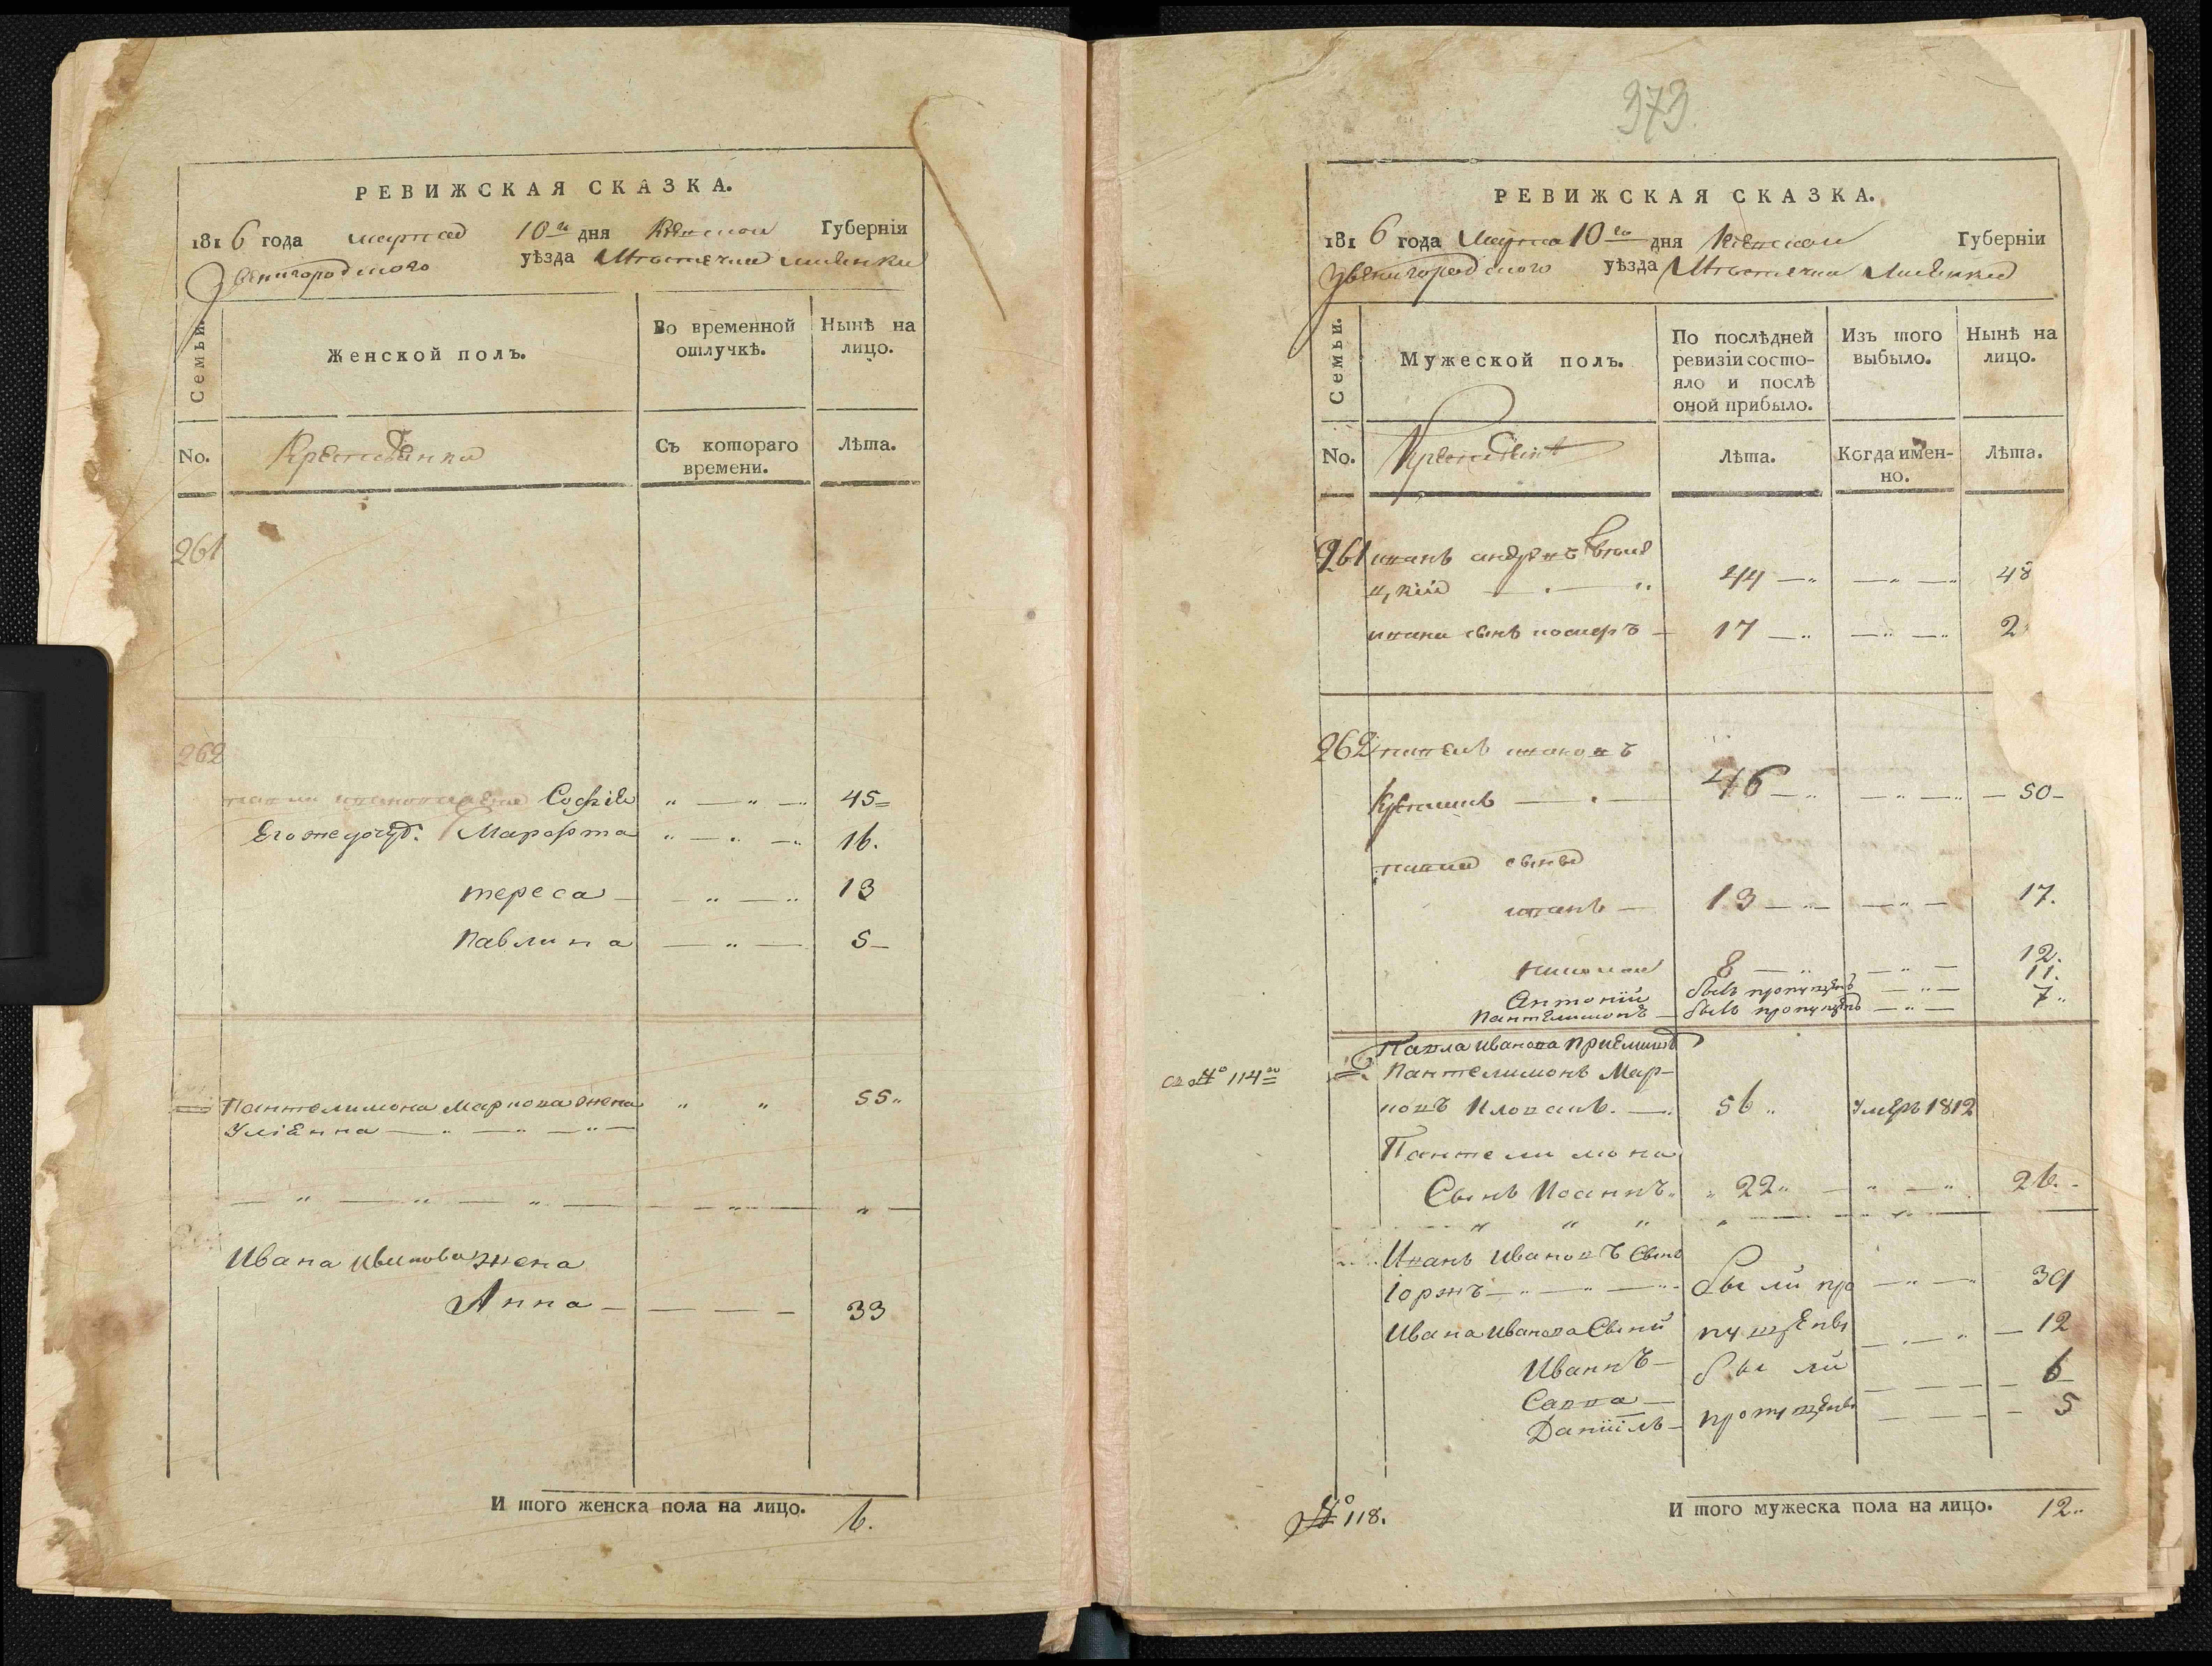 РЕВИЖСКАЯ СКАЗКА.
1816 года марта 10го дня Киевской Губерніи
Звенигородскаго уѣзда Мѣстечка Лисянки
Семьи.
Женской полъ.
Во временной отлучкѣ.
Нынѣ на лицо.
No.
Крестьянки
Съ котораго времени.
Лѣта.
261
262
Павла Софіѧ " — " — 45
Его же дочер: Марфта " — " — 16.
тереса — — " — " 13
Павлина — " — 5
Пантелимона Маркова жена " " 55
Уліѣнна — " — " — " —
— " — " — " — — " — " —
Ивана жена
Анна — — — — 33
И того женска пола на лицо. 6.
373
РЕВИЖСКАЯ СКАЗКА.
1816 года Марта 10го дня Киевской Губерніи
Звенигородскаго уѣзда Мѣстечка Лисянки
Семьи.
Мужеской полъ.
По послѣдней ревизіи состояло и послѣ оной прибыло.
Изъ того выбыло.
Нынѣ на лицо.
No.
Лѣта.
Когда именно.
Лѣта.
261 иванъ
цкій — . — " 44 — " — " — " 48
ивана сынъ — 17 — " — " — " 2
262 павелъ
— . — 46 — " — " — " — 50 —
павла сыны
иванъ — 13 — " — — " — 17.
николай 8 — " — " — 12.
Антоній былъ пропущенъ — " — 11.
Пантелимонъ — былъ пропущенъ — " — 7 "
Павла Иванова приемышъ
No 114
Пантелимонъ Мар-
ковъ — 56 " умеръ 1812
Пантелимона
Сынъ Иоаннъ " " 22 " — " — " 26. -
Иванъ Ивановъ Сынъ
— " — " — " были про — " — " 39
Ивана Иванова Сыни пущены — . — " — 12
Иваннъ — были — — — — 6
Савва —
Даніилъ — пропущены — — — — 5
No 118.
И того мужеска пола на лицо. 12 "